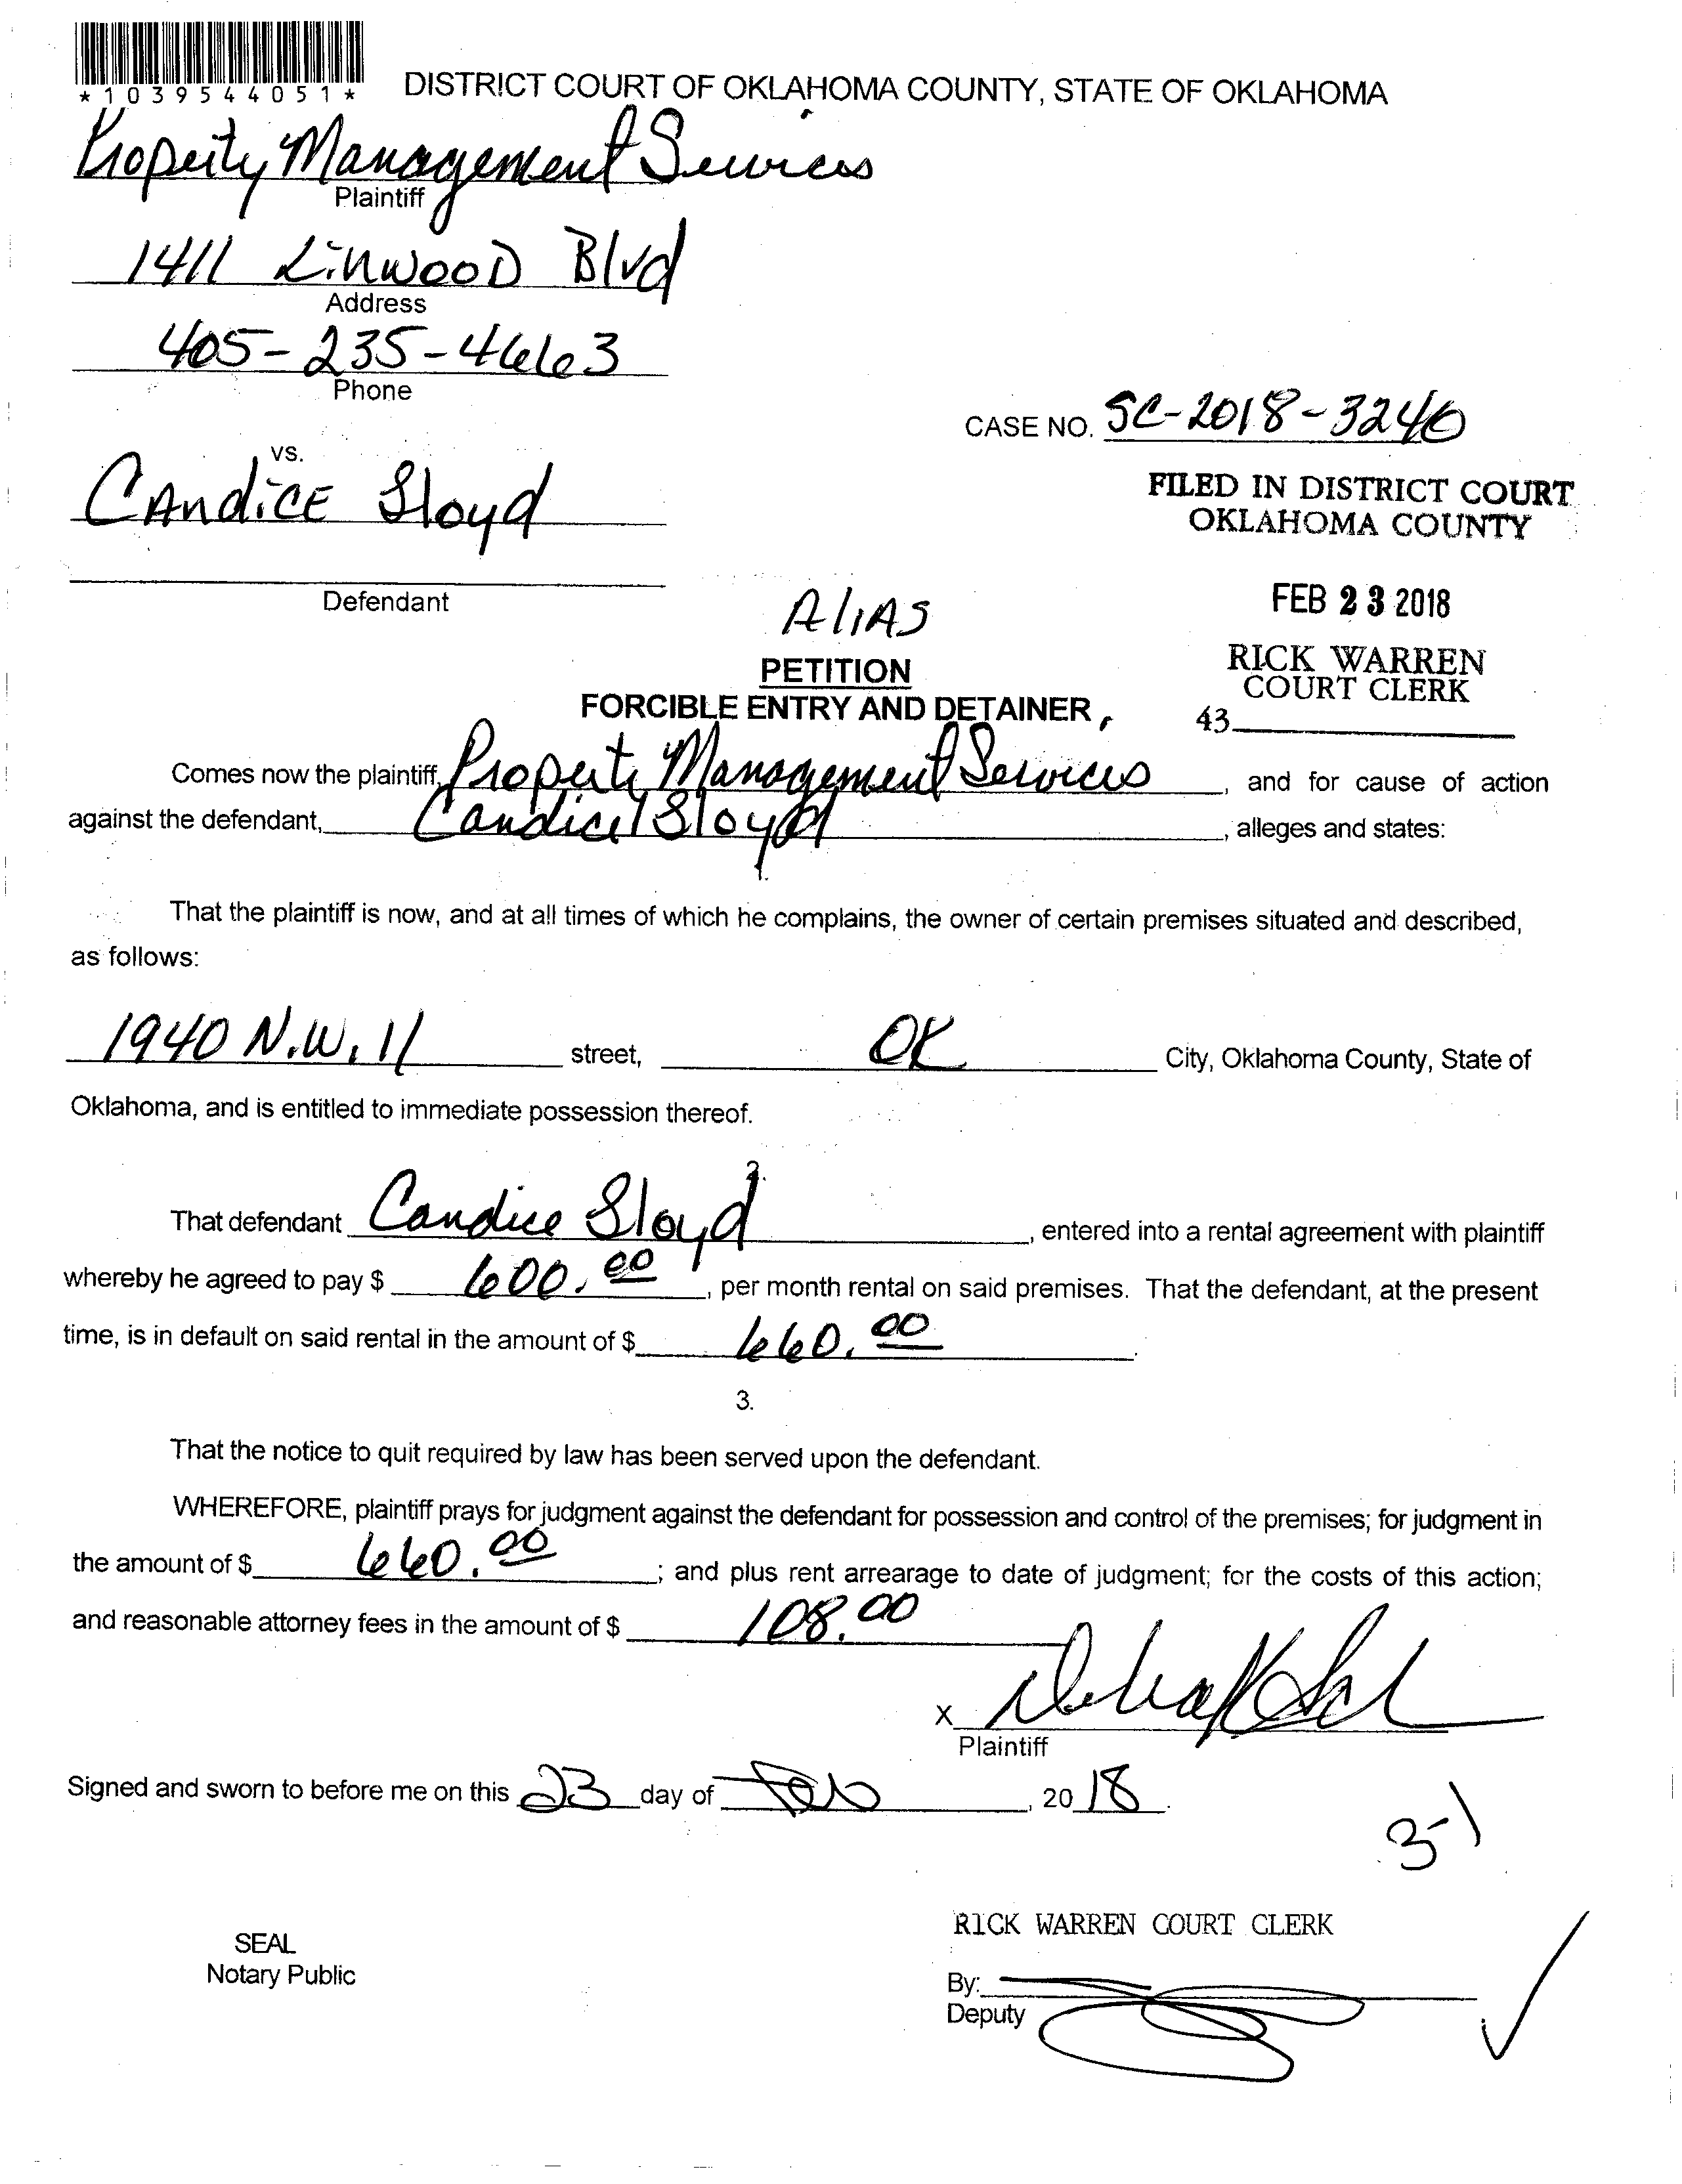 *1039544051*
DISTRICT COURT OF OKLAHOMA COUNTY, STATE OF OKLAHOMA
Property Management Services
Plaintiff
1411 Linwood Blvd
Address
405-235-4663
Phone
CASE NO. SC-2018-3246
vs.
Candice Sloyd
FILED IN DISTRICT COURT
OKLAHOMA COUNTY
Defendant
FEB 23 2018
Alias
RICK WARREN
COURT CLERK
PETITION
FORCIBLE ENTRY AND DETAINER
43
Comes now the plaintiff, Property Management Services, and for cause of action
against the defendant, Candice Sloyd, alleges and states:
1.
That the plaintiff is now, and at all times of which he complains, the owner of certain premises situated and described,
as follows:
1940 N.W. 11 street, OK City, Oklahoma County, State of
Oklahoma, and is entitled to immediate possession thereof.
2.
That defendant Candice Sloyd, entered into a rental agreement with plaintiff
whereby he agreed to pay $ 600.00, per month rental on said premises. That the defendant, at the present
time, is in default on said rental in the amount of $ 660.00.
3.
That the notice to quit required by law has been served upon the defendant.
WHEREFORE, plaintiff prays for judgment against the defendant for possession and control of the premises; for judgment in
the amount of $ 660.00; and plus rent arrearage to date of judgment; for the costs of this action;
and reasonable attorney fees in the amount of $ 108.00
X
Plaintiff
Signed and sworn to before me on this 23 day of Feb, 2018.
3-1
RICK WARREN COURT CLERK
SEAL
Notary Public
By:
Deputy